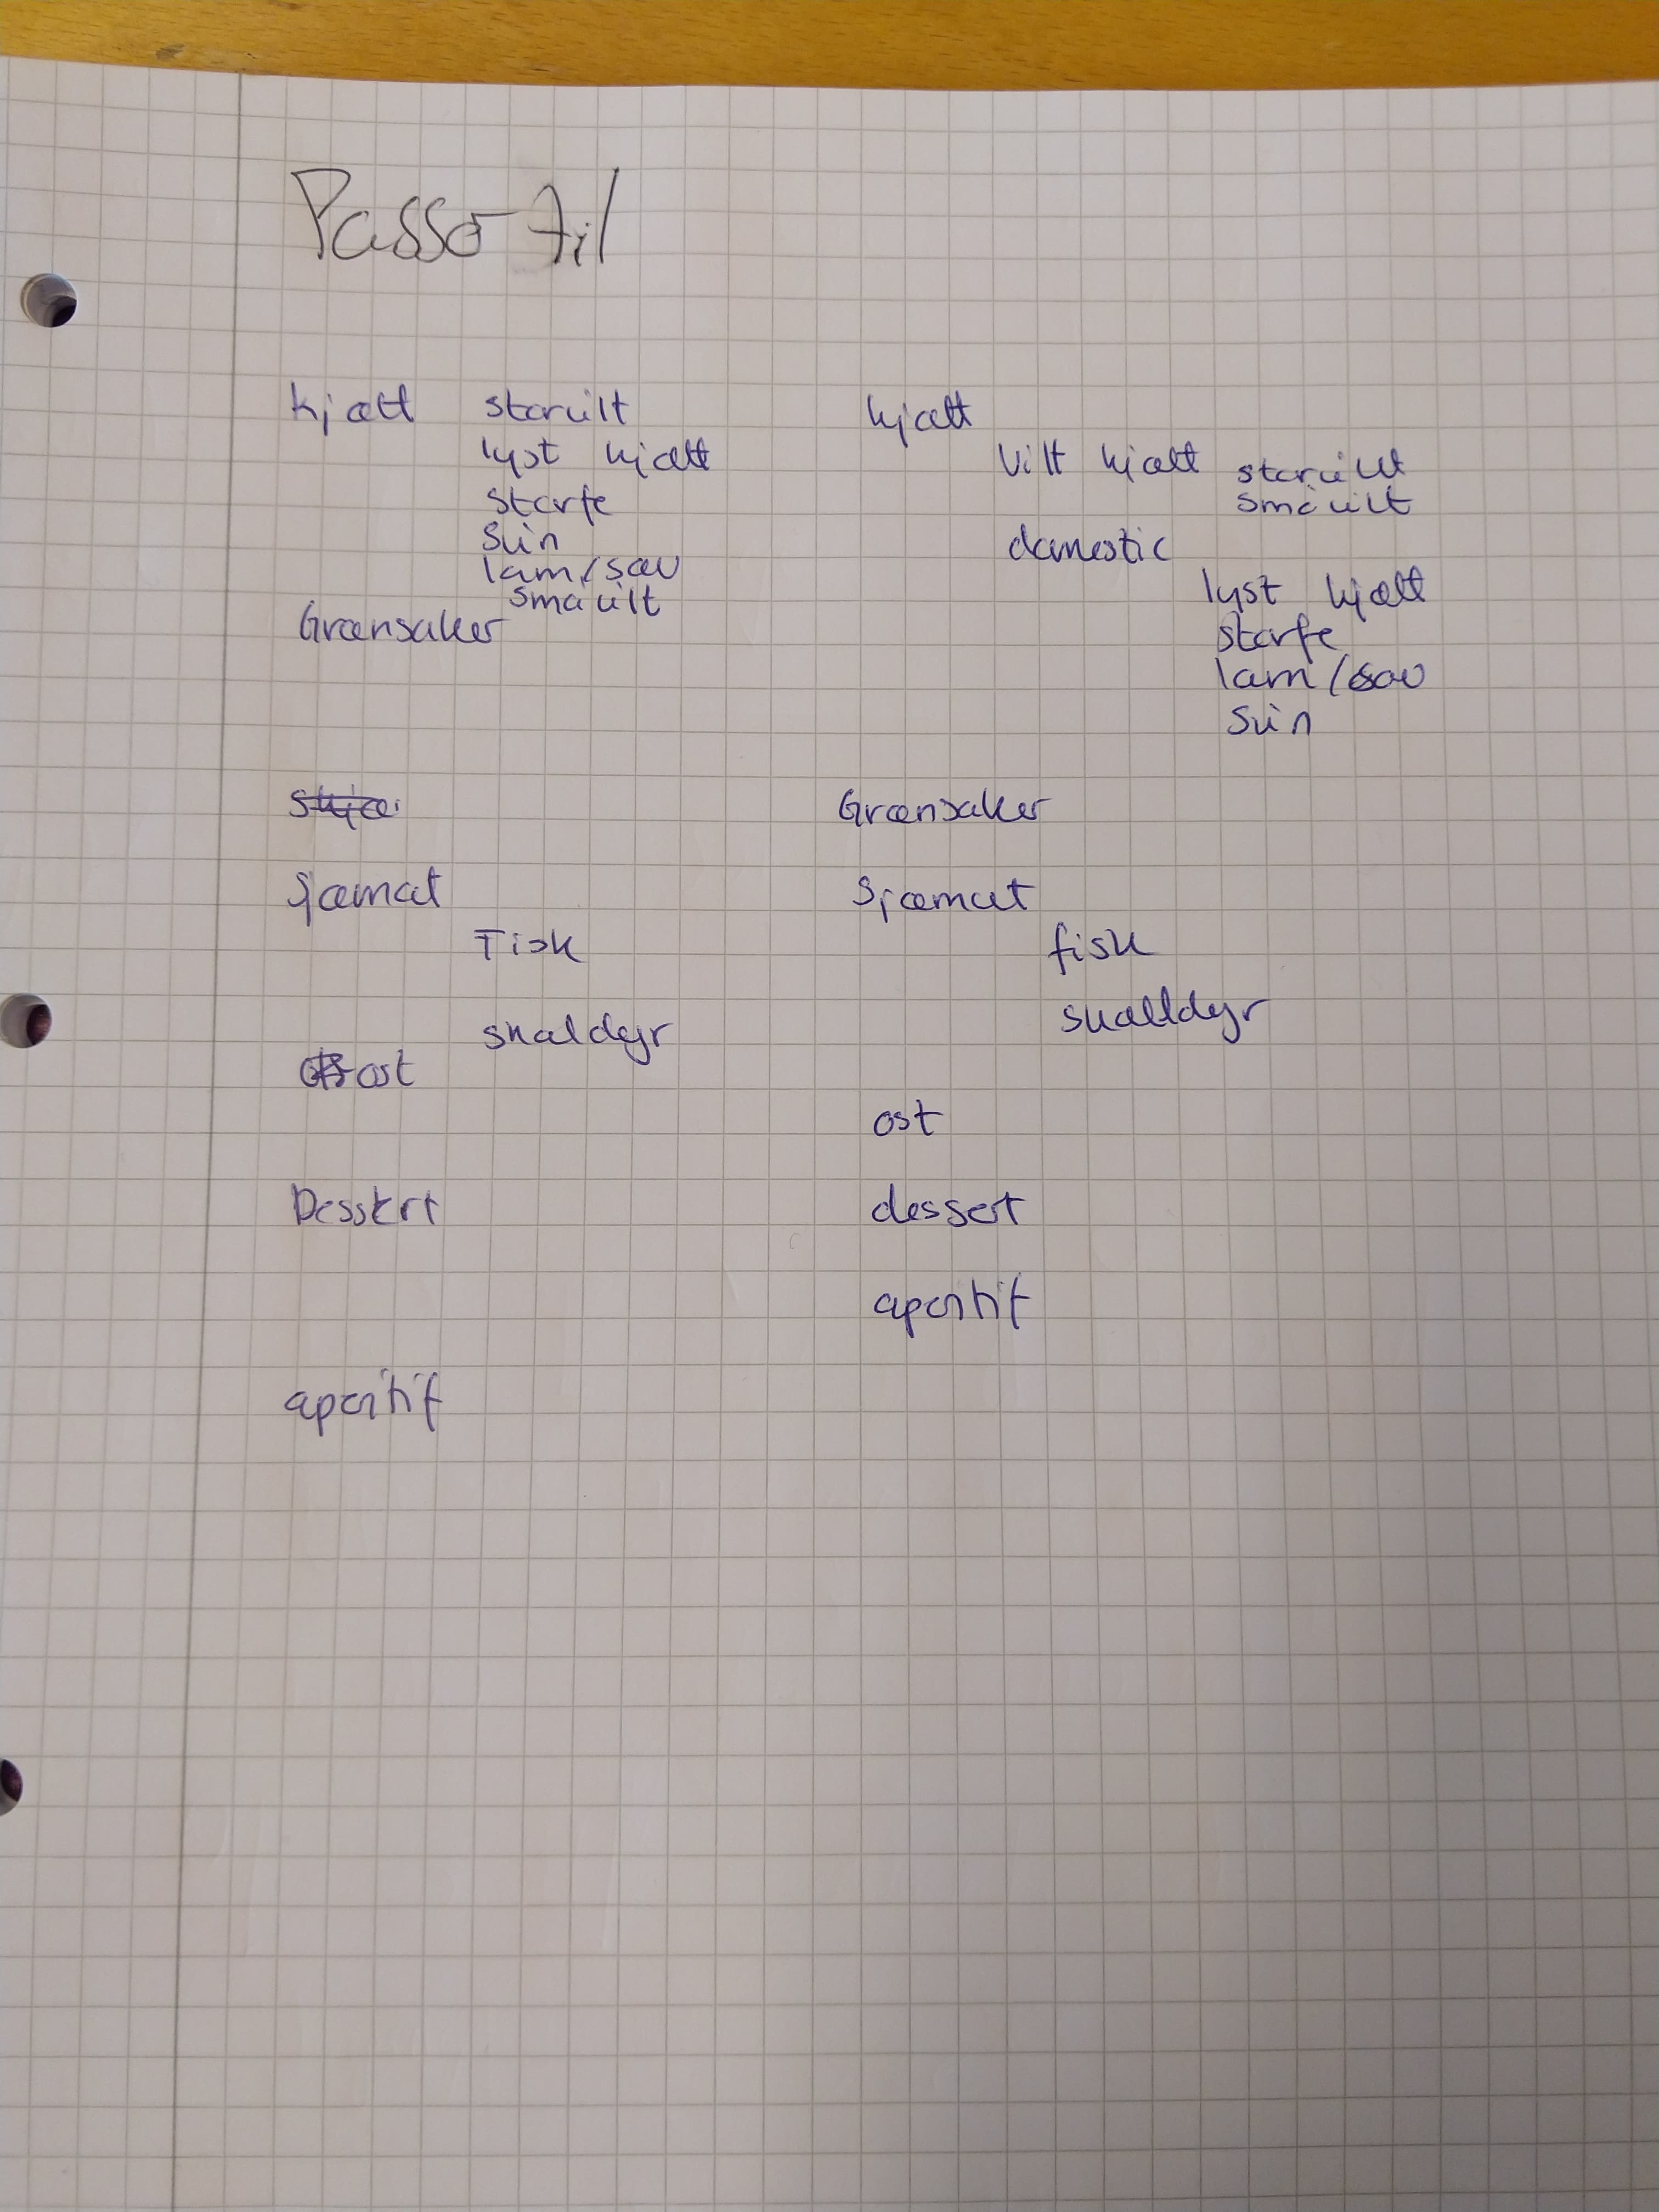 Passer til
kjøtt storvilt
lyst kjøtt
storfe
svin
lam/sau
småvilt
Grønsaker
Sjømat
Fisk
skaldyr
ost
Dessert
aperitif
kjøtt
Vilt kjøtt storvilt
småvilt
domestic
lyst kjøtt
storfe
lam/sau
svin
Grønsaker
Sjømat
fisk
skalldyr
ost
dessert
aperitif